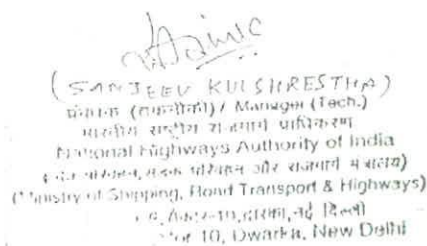 (SANJEEV KULSHRESTHA)
प्रबंधक (तकनीकी) / Manager (Tech.)
भारतीय राष्ट्रीय राजमार्ग प्राधिकरण
National Highways Authority of India
परिवहन, सड़क परिवहन और राजमार्ग मंत्रालय)
(Ministry of Shipping, Road Transport & Highways)
सेक्टर-10, द्वारका, नई दिल्ली
10, Dwarka, New Delhi